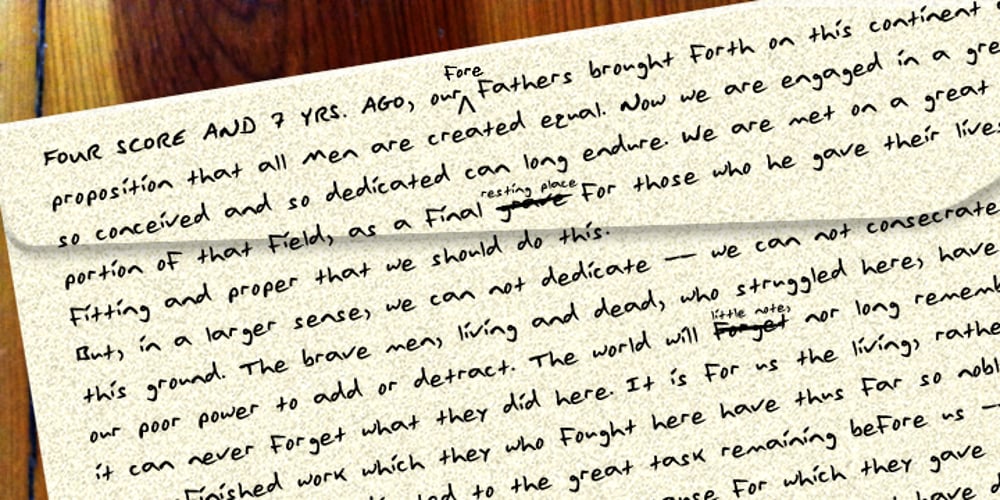 Fore
FOUR SCORE AND 7 YRS. AGO, our Fathers brought Forth on this continent
proposition that all men are created equal. Now we are engaged in a gre
so conceived and so dedicated can long endure. We are met on a great
resting place
portion of that Field, as a Final grave For those who he gave their live
Fitting and proper that we should do this.
But, in a larger sense, we can not dedicate — we can not consecrate
this ground. The brave men, living and dead, who struggled here, have
little note,
our poor power to add or detract. The world will Forget nor long rememb
it can never Forget what they did here. It is For us the living, rathe
Finished work which they who Fought here have thus Far so nobl
to the great task remaining before us —
For which they gave
have